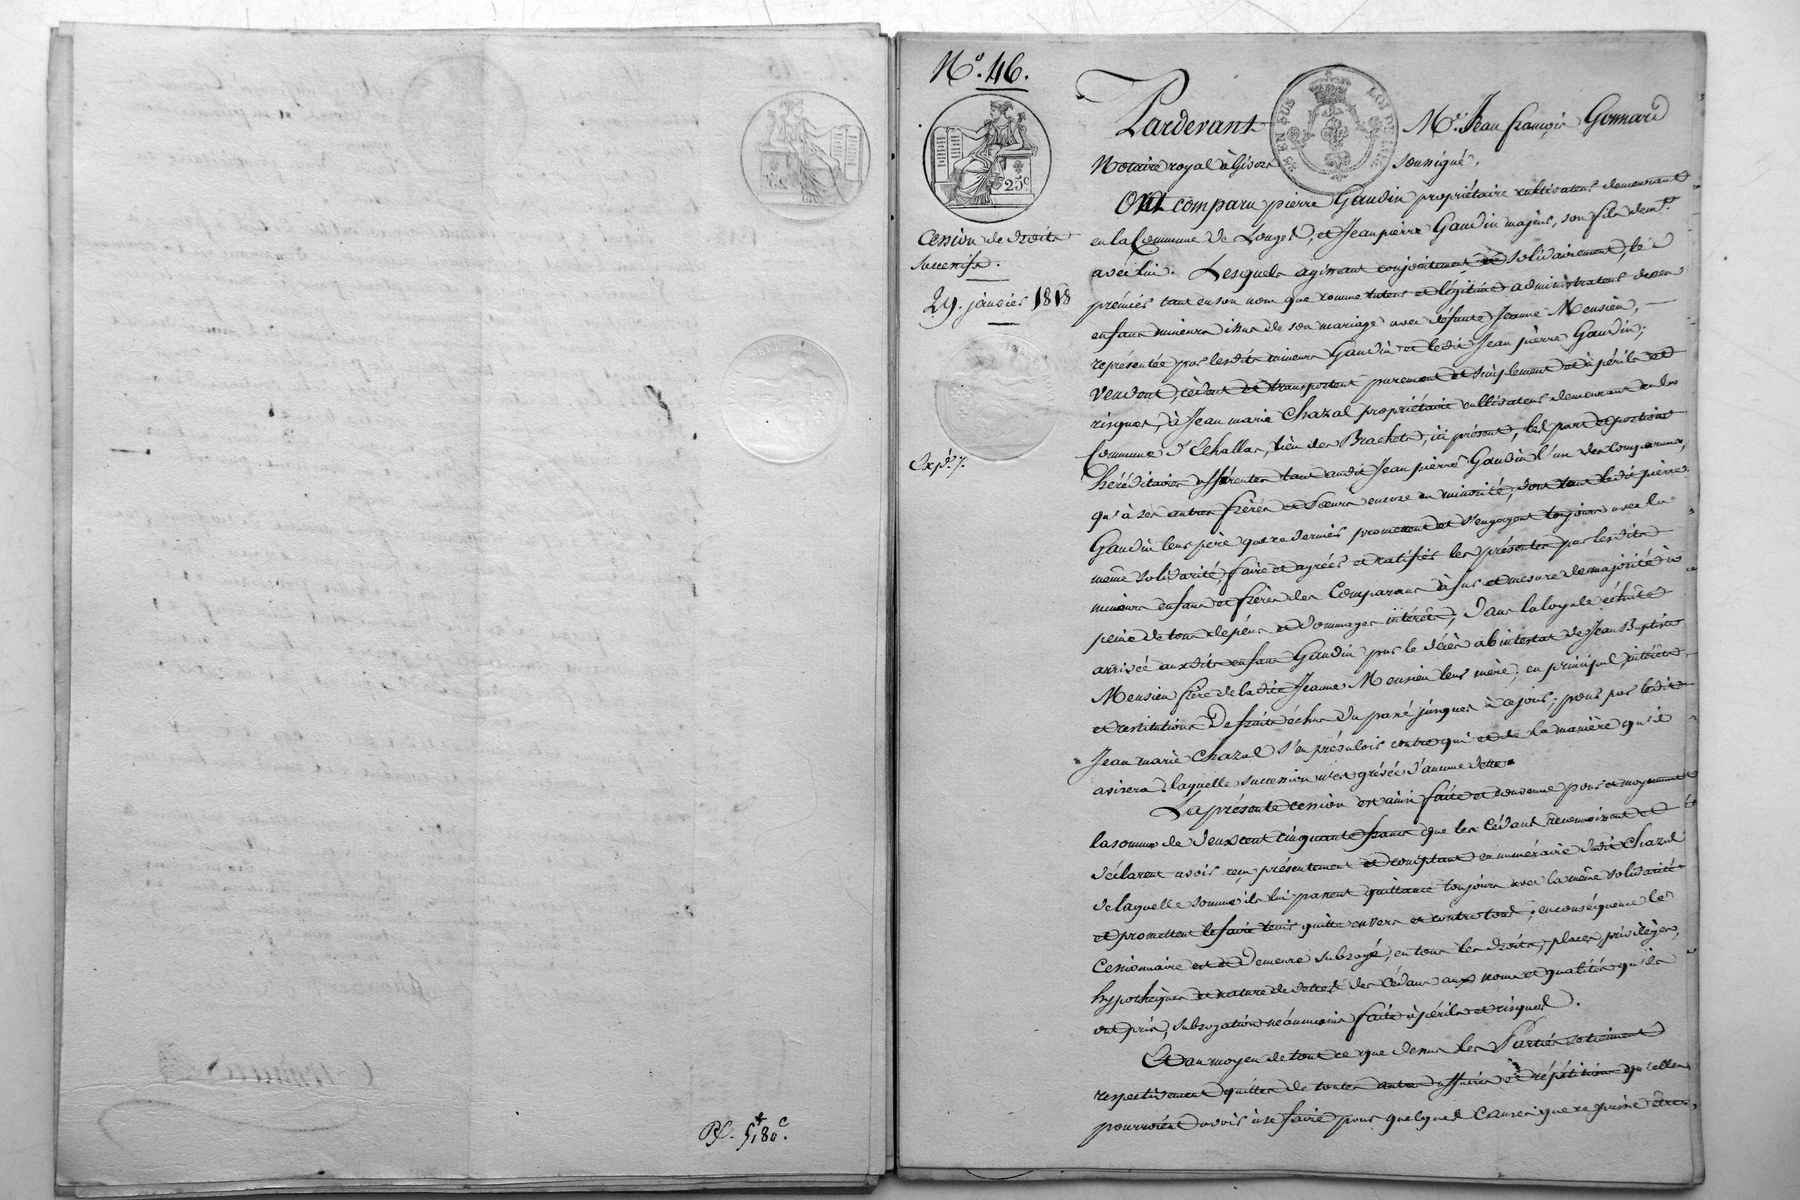 Rf. 5,80c.
N°. 46.
25c
Cession de droits
successifs.
29. janvier 1818
Expd. 7.
25 EN SUS
LOI DE 1816
Pardevant Me. Jean françois Gonnard
Notaire royal à Givors soussigné,
Ont comparu pierre Gaudin propriétaire cultivateur demeurant
en la Commune de Longes, et Jean pierre Gaudin majeur, son fils demt.
avec lui. Lesquels agissant conjointement et solidairement, le
premier tant en son nom que comme tuteur et légitime administrateur de ses
enfans mineurs issus de son mariage avec défunte Jeanne Mensien,
représentée par lesdits mineurs Gaudin et ledit Jean pierre Gaudin;
vendent, cèdent et transportent purement et simplement et à périls et
risques, à Jean marie Chazal propriétaire cultivateur demeurant en la
Commune d'Echallas, lieu des Brachets, ici présent, les part et portions
héréditaires afférentes tant audit Jean pierre Gaudin l'un des Comparans,
qu'à ses autres frères et soeurs encore en minorité, dont tant ledit pierre
Gaudin leur père que ce dernier promettent et s'engagent toujours avec la
même solidarité, faire et agréer et ratifier les présentes par lesdits
mineurs enfans et frères des Comparans à fur et mesure de majorité à
peine de tous dépens et dommages intérêts, dans la loyale échûte
arrivée auxdits enfans Gaudin par le décès ab intestat de Jean Baptiste
Mensien frère de ladite Jeanne Mensien leur mère; en principal, intérêts
et restitutions de fruits échus du passé jusques à ce jour; pour par ledit
Jean marie Chazal s'en prévaloir contre qui et de la manière qu'il
avisera. laquelle succession n'est grévée d'aucune dette.
La présente cession est ainsi faite et convenue pour et moyennant
la somme de deux cent cinquante francs que les Cédans reconnoissent et
déclarent avoir reçu présentement et comptant en numéraire dudit Chazal
de laquelle somme ils lui passent quittance toujours avec la même solidarité
et promettent le faire tenir quitte envers et contre tous; en conséquence le
Cessionnaire est et demeure subrogé, en tous les droits, places, privilèges,
hypothèques et nature de dettes des cédans aux noms et qualités qu'ils
ont pris, subrogation néanmoins faite à périls et risques.
Et au moyen de tout ce que dessus les Parties se tiennent
respectivement quittes de toutes autres affaires et répétitions qu'elles
pourroient avoir à se faire pour quelques causes que ce puisse être,